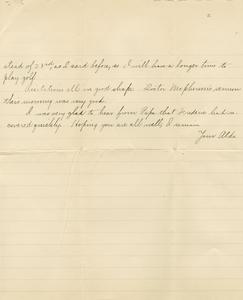 2
stead of 23rd, as I said before, so I will have a longer time to
play golf.
Recitations all in good shape. Doctor sermon
this morning was very good.
I was very glad to hear from Papa that had re-
covered quickly. Hoping you are all well, I remain
Your Alda